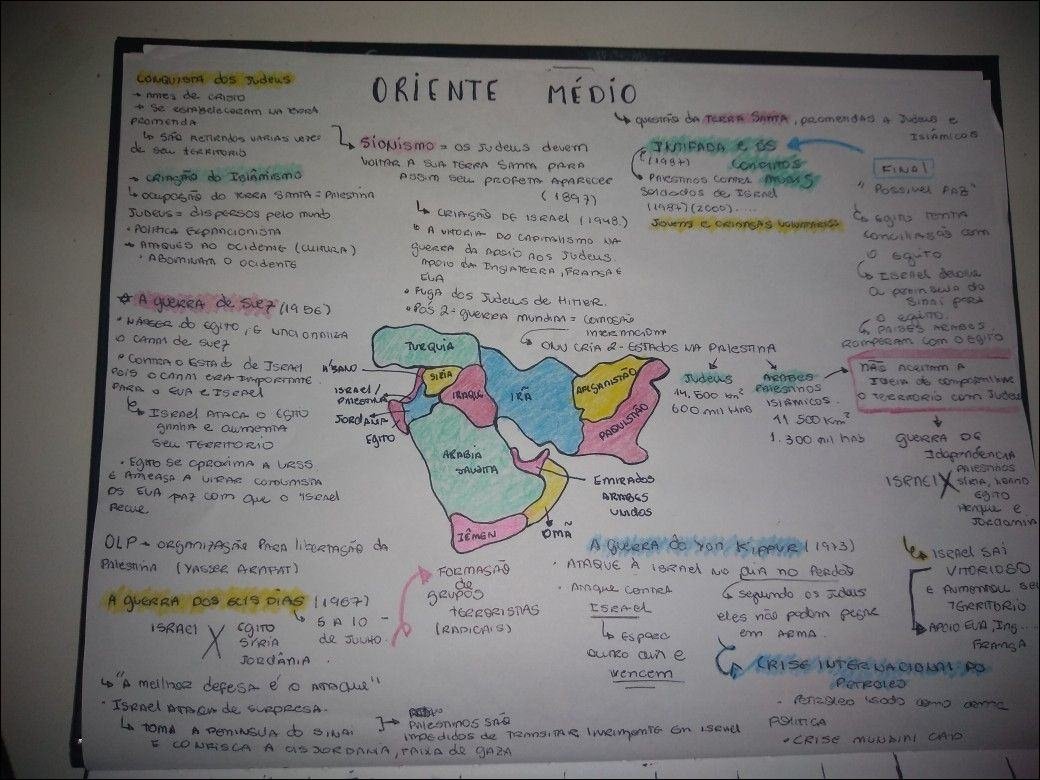 ORIENTE MÉDIO
CONQUISTA DOS JUDEUS
→ ANTES DE CRISTO
→ SE ESTABELECERAM NA TERRA
PROMENDA
↳ SÃO RETIRADOS VARIAS VEZES
DE SEU TERRITORIO
→ CRIAÇÃO DO ISLÂMISMO
↳ OCUPAÇÃO DO TERRA SANTA = PALESTINA
JUDEUS = DISPERSOS PELO MUNDO
• POLITICA EXPANCIONISTA
→ ATAQUES AO OCIDENTE (CULTURA)
• ABOMINAM O OCIDENTE
A GUERRA DE SUEZ (1956)
• NASSER DO EGITO, E NACIONALIZA
O CANAL DE SUEZ
• CONTRA O ESTADO DE ISRAEL
POIS O CANAL ERA IMPORTANTE
PARA O EUA E ISRAEL
↳ ISRAEL ATACA O EGITO
GANHA E AUMENTA
SEU TERRITORIO
• EGITO SE APROXIMA A URSS
E AMEAÇA A VIRAR COMUNISTA
OS EUA FAZ COM QUE O ISRAEL
RECUE.
OLP → ORGANIZAÇÃO PARA LIBERTAÇÃO DA
PALESTINA (YASSER ARAFAT)
A GUERRA DOS SEIS DIAS (1967)
↳ 5 A 10 -
DE JULHO.
ISRAEL X EGITO
SÍRIA
JORDÂNIA.
↳ "A MELHOR DEFESA É O ATAQUE"
• ISRAEL ATACA DE SURPRESA.
↳ TOMA A PENINSULA DO SINAI
E CONFISCA A CISJORDANIA, FAIXA DE GAZA
PALESTINOS SÃO
IMPEDIDOS DE TRANSITAR LIVREMENTE EM ISRAEL
↳ SIONISMO = OS JUDEUS DEVEM
VOLTAR A SUA TERRA SANTA PARA
ASSIM SEU PROFETA APARECER
(1897)
↳ CRIAÇÃO DE ISRAEL (1948)
A VITORIA DO CAPITALISMO NA
GUERRA DA APOIO AOS JUDEUS.
APOIO DA INGLATERRA, FRANÇA E
EUA
• FUGA DOS JUDEUS DE HITLER.
• PÓS 2ª GUERRA MUNDIAL = COMOÇÃO
INTERNACIONAL
↳ ONU CRIA 2 - ESTADOS NA PALESTINA
JUDEUS
14.500 km²
600 MIL HAB
ARABES
PALESTINOS
ISLÂMICOS.
11 500 km²
1.300 MIL HAB
TURQUIA
SIRIA
IRAQUE
IRÃ
AFEGANISTÃO
PAQUISTÃO
ISRAEL/
PALESTINA
JORDANIA
EGITO
ARABIA
SAUDITA
EMIRADOS
ARABES
UNIDOS
IÊMEN
OMÃ
FORMAÇÃO
DE
GRUPOS
TERRORISTAS
(RADICAIS)
↳ QUESTÃO DA TERRA SANTA, PROMENDAS A JUDEUS E
ISLÂMICOS
INTIFADA E OS
(1987) CONFLITOS
ATUAIS
PALESTINOS CONTRA
SOLDADOS DE ISRAEL
(1987) (2000).....
JOVENS E CRIANÇAS VOLUNTARIOS
FINAL
"POSSIVEL PAZ"
↳ EGITO TENTA
CONCILIAÇÃO COM
O EGITO
↳ ISRAEL DEVOLVE
A PENINSULA DO
SINAI PARA
O EGITO.
↳ PAISES ARABES.
ROMPERAM COM O EGITO
NÃO ACEITAM A
IDEIA DE COMPARTILHAR
O TERRITORIO COM JUDEUS
GUERRA DE
IDEPENDÊNCIA
ISRAEL X PALESTINOS
SÍRIA, LIBANO
EGITO
IRAQUE E
JORDANIA
↳ ISRAEL SAI
VITORIOSO
E AUMENTOU SEU
TERRITORIO
→ APOIO EUA, ING...
FRANÇA
A GUERRA DO YON KIPPUR (1973)
• ATAQUE À ISRAEL NO DIA NO PERDÃO
↳ SEGUNDO OS JUDEUS
ELES NÃO PODEM PEGAR
EM ARMA.
• ATAQUE CONTRA
ISRAEL
↳ ESPERA
OUTRO DIA E
VENCEM
CRISE INTERNACIONAL DO
PETROLEO
• PETROLEO USADO COMO ARMA
POLITICA
• CRISE MUNDIAL